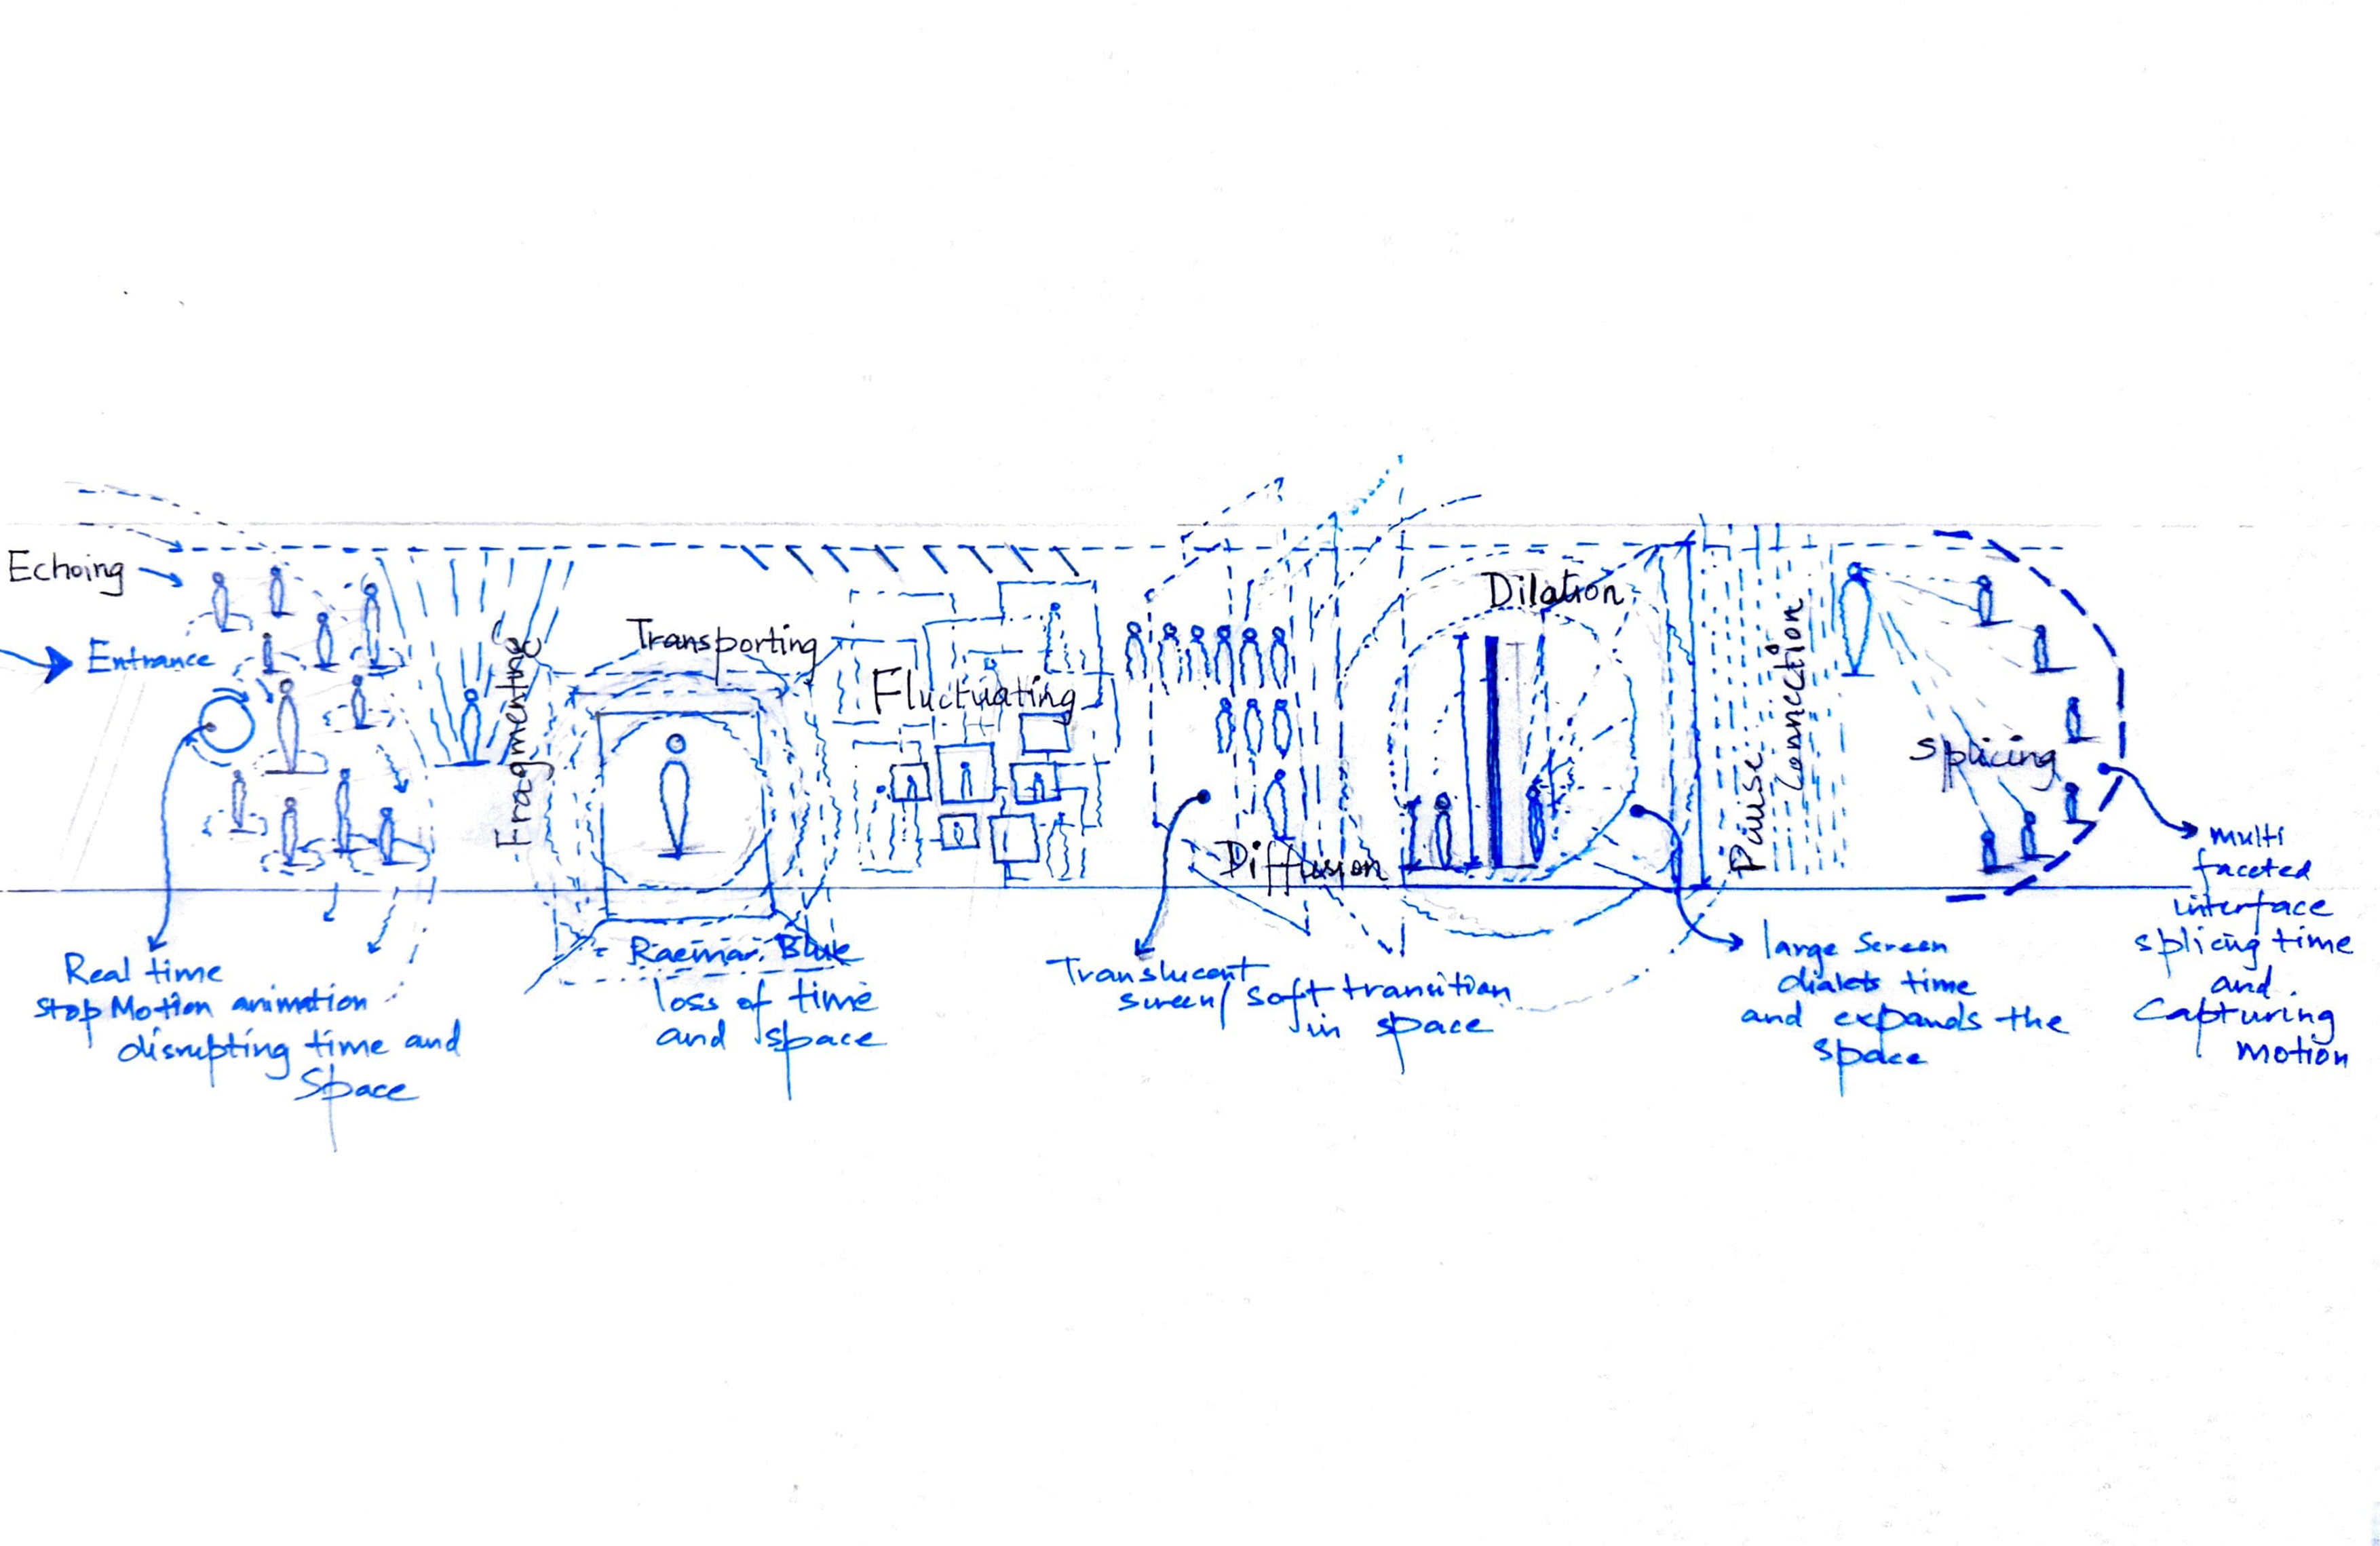 Echoing
Entrance
Fragmenting
Transporting
Fluctuating
Diffusion
Dilation
Pause
Connection
Splicing
Real time
stop Motion animation
disrupting time and
Space
Raemar. Blue
loss of time
and space
Translucent
screen/ soft transition
in space
large Screen
dialets time
and expands the
space
multi
faceted
interface
splicing time
and
Capturing
motion